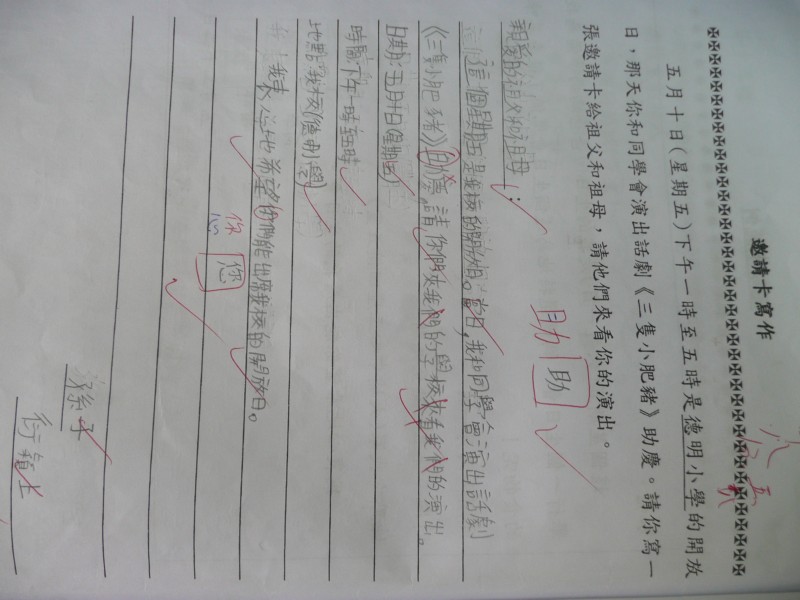 邀請卡寫作
五月十日(星期五)下午一時至五時是德明小學的開放
日，那天你和同學會演出話劇《三隻小肥豬》助慶。請你寫一
張邀請卡給祖父和祖母，請他們來看你的演出。
助 助
親愛的祖父和祖母：
這個星期五是我校的開放日。當日，我和同學會演出話劇
《三隻小肥豬》助慶，請你們來我們的學校來看我們的演出。
日期：五月十日(星期五)
時間：下午一時至五時
地點：我校(德明小學)
我衷心地希望你們能出席我校的開放日。
你
心
您
孫子
衍
上